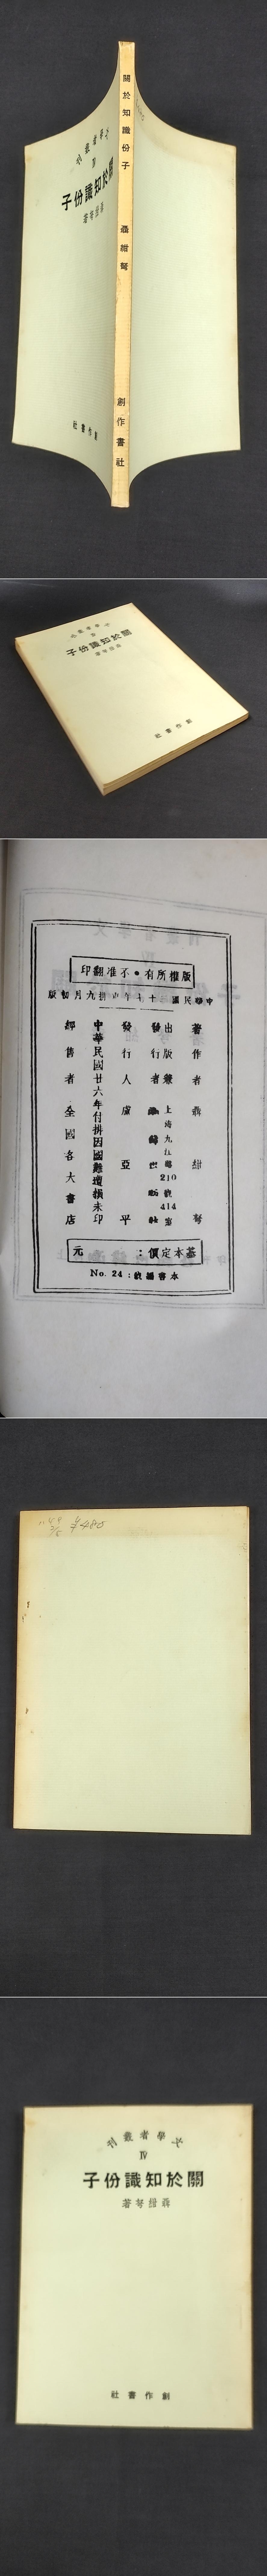 關於知識份子 聶紺弩 創作書社
關於知識份子
聶紺弩著
創作書社
關於知識份子
聶紺弩著
創作書社
版權所有•不准翻印
中華民國三十七年九月初版
著作者 聶紺弩
出版兼
發行者
上海九江路210號414室
發行人 盧亞平
中華民國廿六年付排因國難遭損未印
經售者 全國各大書店
基本定價： 元
本書編號：No. 24
¥480
文學者叢刊
Ⅳ
關於知識份子
聶紺弩著
創作書社